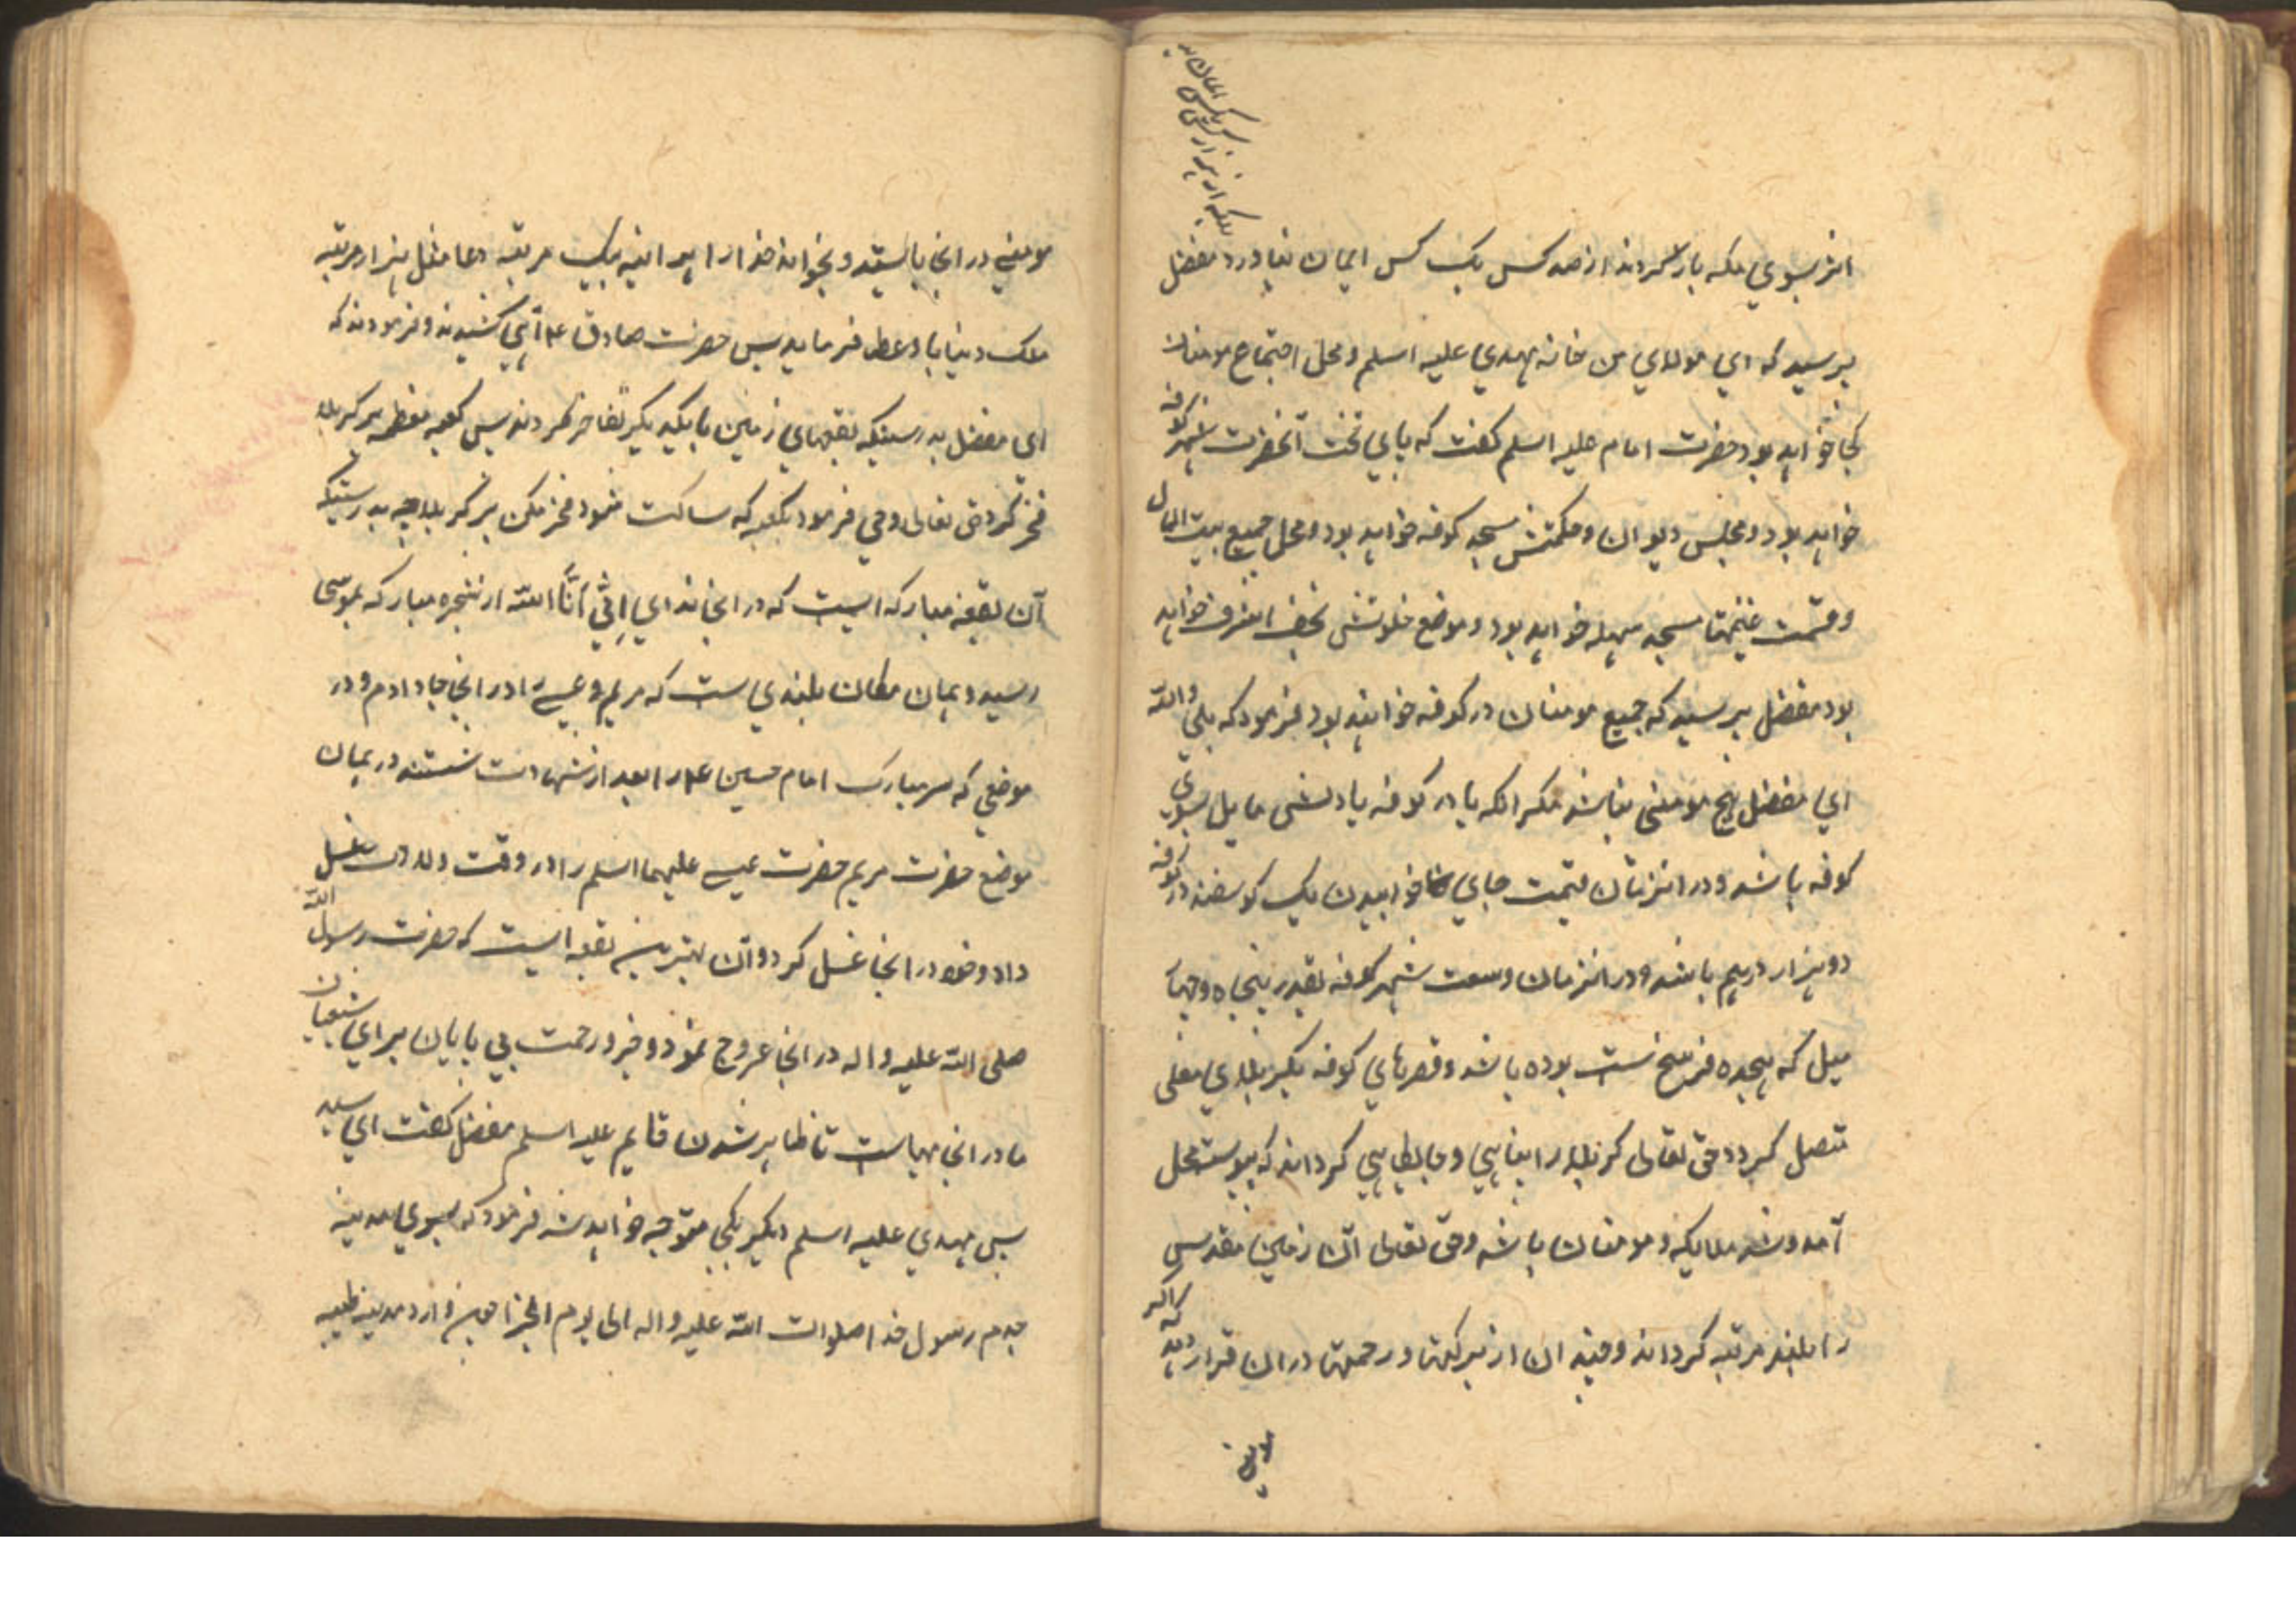 بلکه از هزار کس یک کس ایمان نیا
انز بسوی مکه باز کردند از صد کس یک کس ایمان نیاورد مفضل
پرسید که ای مولای من خانه مهدی علیه اسلم و محل اجتماع مومنان
کجا خواهد بود حضرت امام علیه اسلم گفت که پای تخت آنحضرت شهر کوفه
خواهد بود و مجلس دیوان و حکمتش مسجد کوفه خواهد بود و محل جمیع بیت المال
و قسمت غنیمتها مسجد سهله خواهد بود و موضع خلوتش نجف اشرف خواهد
بود مفضل پرسید که جمیع مومنان در کوفه خواهند بود فرمود که بلی والله
ای مفضل هیچ مومنی نباشد مکر انکه یا در کوفه یا دلش مایل بسوی
کوفه باشد و در انزمان قیمت جای خوابیدن یک کوسفند در کوفه
دو هزار درهم باشد و در انزمان وسعت شهر کوفه بقدر پنجاه و چهار
میل که هیجده فرسخ است بوده باشد و قصرهای کوفه بکربلای معلی
متصل کردد حق تعالی کربلا را پناهی و جایگاهی کرداند که پیوسته محل
آمد و شد ملایکه و مومنان باشد و حق تعالی آن زمین مقدس
را بلند مرتبه کرداند و چندان از برکتها و رحمتها در ان قرار دهد که اکر
مومنی
مومنی در انجا بایستد و بخواند خدا را هر اینه بیک مرتبه دعا مثل هزار مرتبه
ملک دنیا باو عطا فرماید پس حضرت صادق ع آهی کشیدند و فرمودند که
ای مفضل بدرستیکه بقعهای زمین با یکدیکر تفاخر کردند پس کعبه معظمه بر کربلا
فخر کرد حق تعالی وحی فرمود بکعبه که ساکت شو و فخر مکن بر کربلا چه بدرستیکه
آن بقعه مبارکه ایست که در انجا ندای اِنّی اَنَا الله از شجره مبارکه بموسی
رسید و همان مکان بلندی است که مریم و عیسی را در انجا جا دادم و در
موضعی که سر مبارک امام حسین ع را بعد از شهادت شستند در همان
موضع حضرت مریم حضرت عیسی علیهما اسلم را در وقت ولادت غسل
داد و خود در انجا غسل کرد و آن بهترین بقعه ایست که حضرت رسول الله
صلی الله علیه و اله در انجا عروج نمود و خیر و رحمت بی پایان برای شیعیان
ما در انجا مهیاست تا ظاهر شدن قایم علیه اسلم مفضل گفت ای سید
پس مهدی علیه اسلم دیکر بکجا متوجه خواهد شد فرمود که بسوی مدینه
جدم رسول خدا صلوات الله علیه و اله الی یوم الجزا چون وارد مدینه طیبه